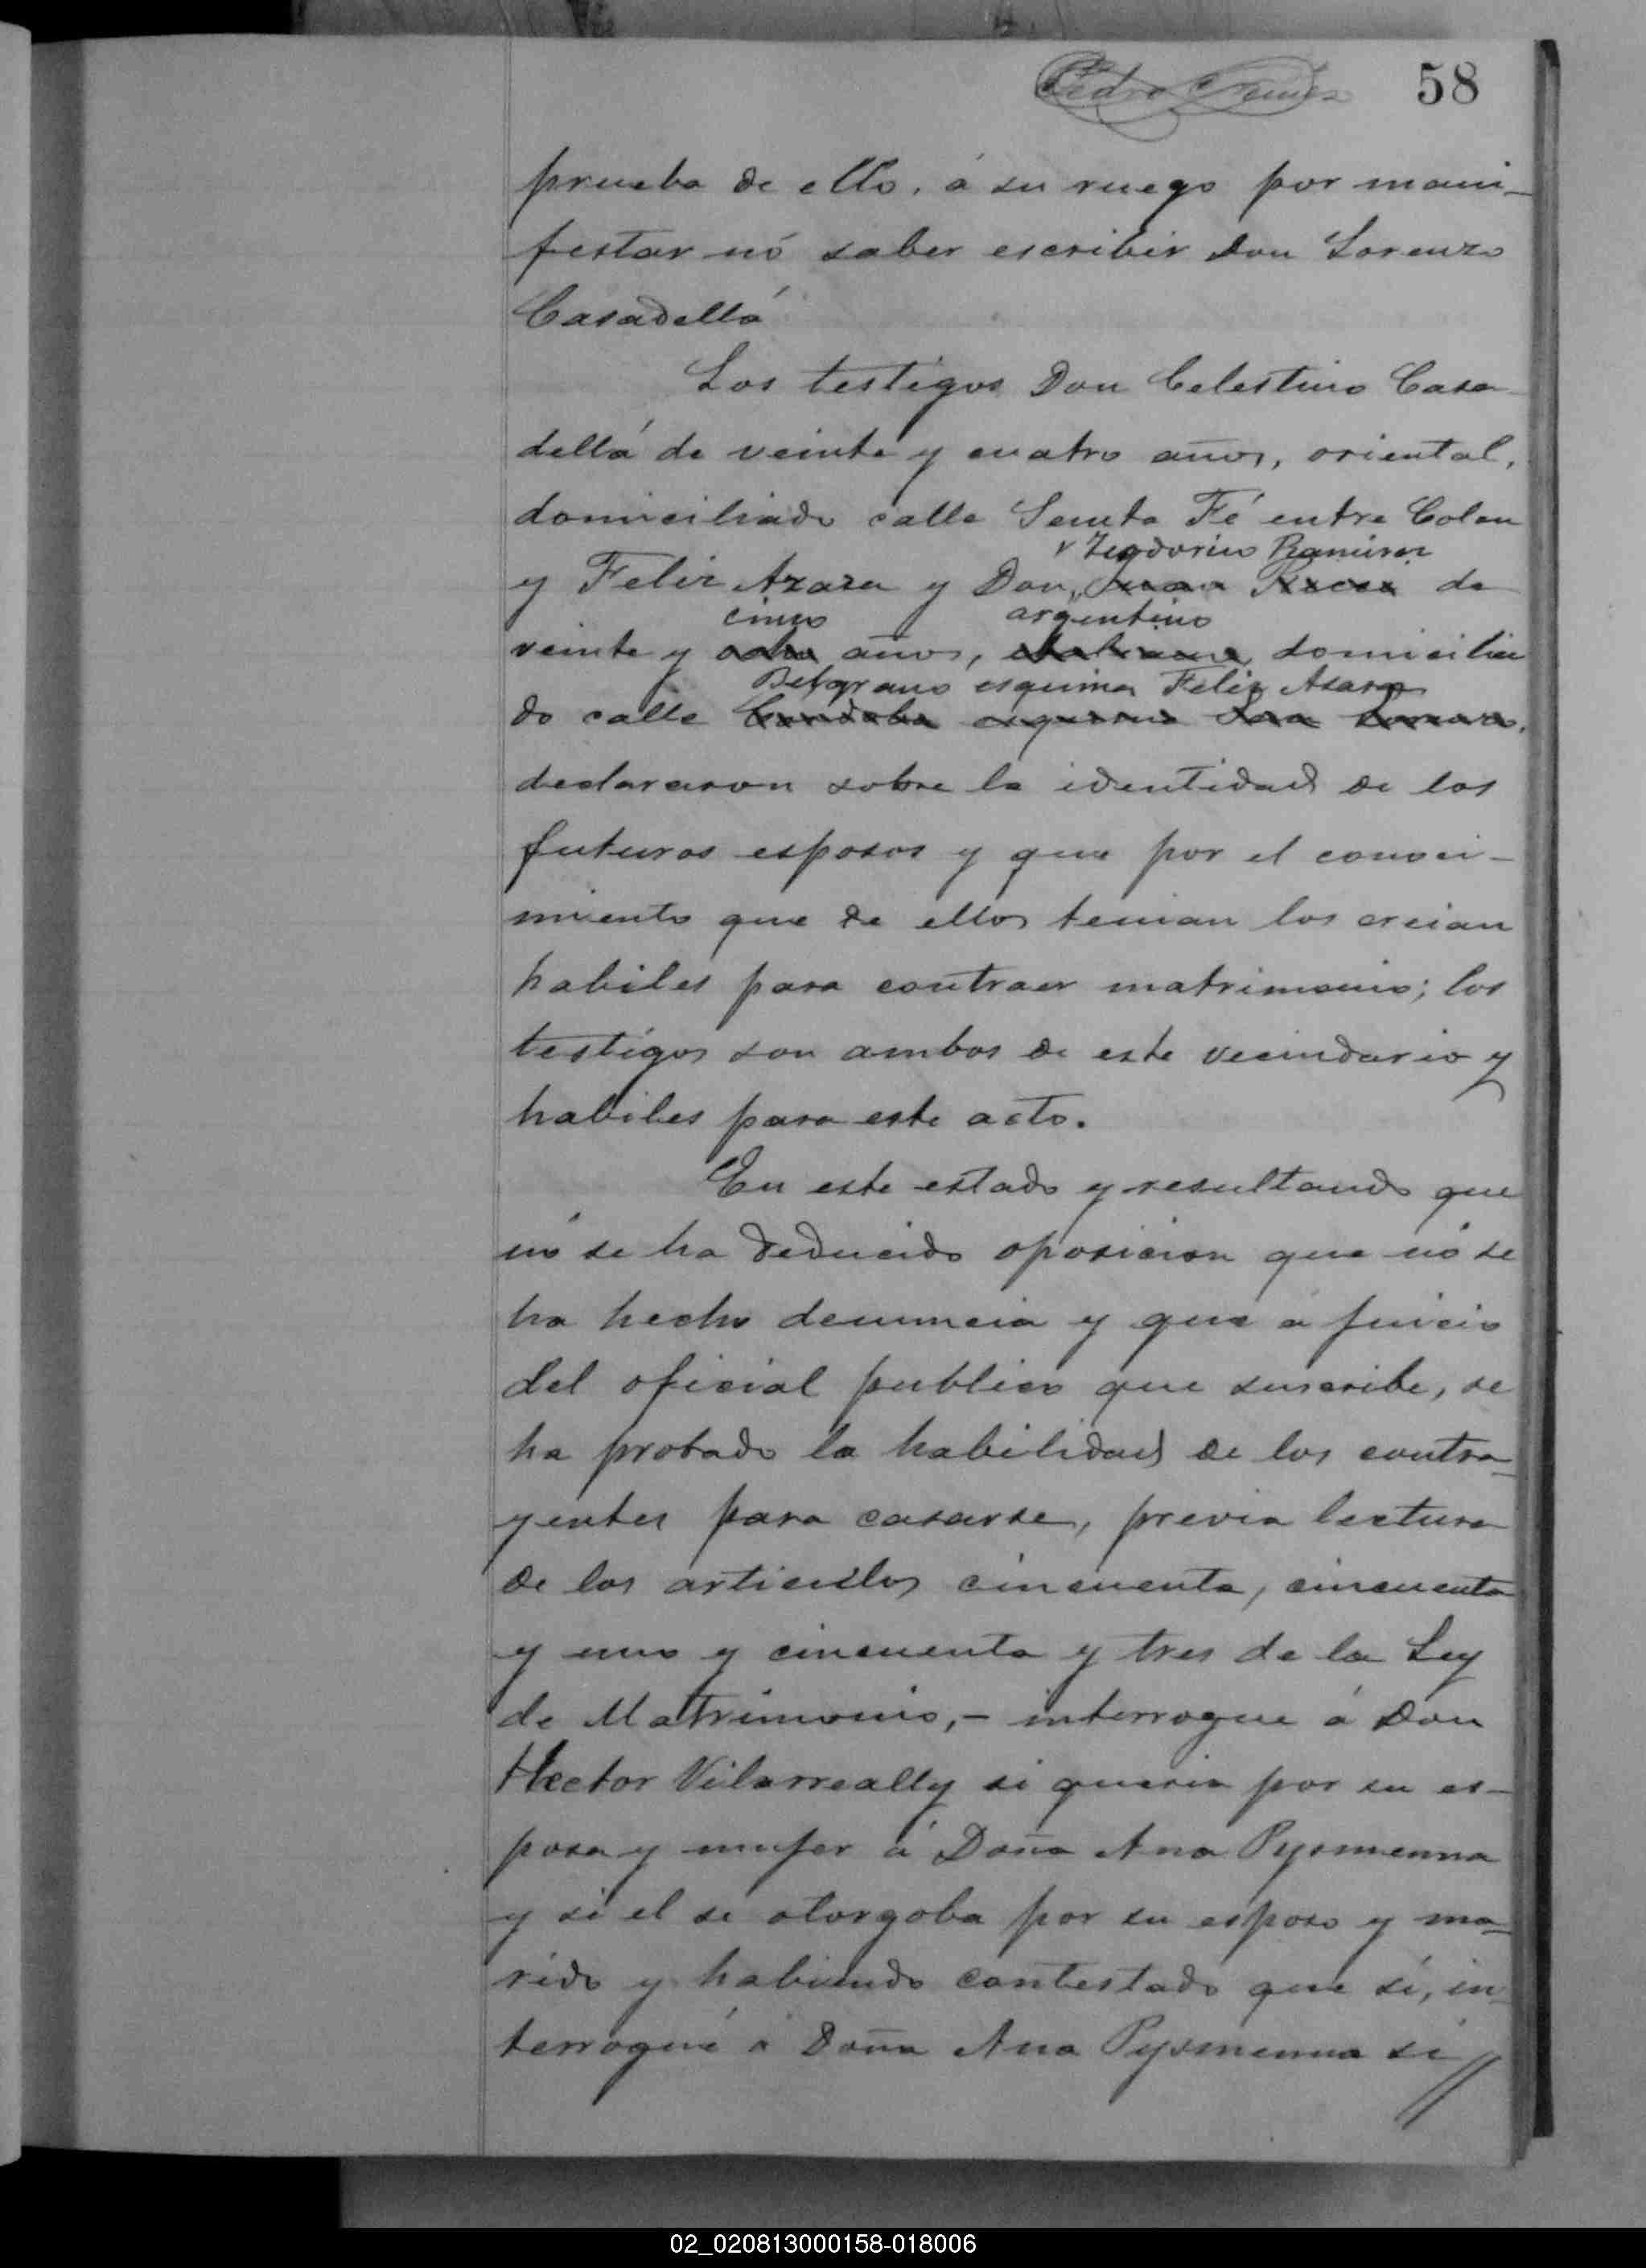 Pedro Nuñez 58
prueba de ello, á su ruego por mani-
festar nó saber escribir Don Lorenzo
Casadellá
Los testigos Don Celestino Casa-
dellá de veinte y cuatro años, oriental,
domiciliado calle Santa Fé entre Colon
Teodorino Ramirez
y Felix Azara y Don Juan de
cinco argentino
veinte y ocho años, italiano, domicilia
Belgrano esquina Felix Azara
do calle Cordoba esquina San Lorenzo,
declararon sobre la identidad de los
futuros esposos y que por el conoci-
miento que de ellos tenian los creian
habiles para contraer matrimonio; los
testigos son ambos de este vecindario y
habiles para este acto.
En este estado y resultando que
nó se ha deducido oposicion que nó se
ha hecho denuncia y que á juicio
del oficial publico que suscribe, se
ha probado la habilidad de los contra-
yentes para casarse, previa lectura
de los articulos cincuenta, cincuenta
y uno y cincuenta y tres de la Ley
de Matrimonio,- interrogue á Don
Hector Vilarreally si queria por su es-
posa y mujer á Doña Ana Pysmenna
y si el se otorgaba por su esposo y ma-
rido y habiendo contestado que sí, in-
terrogué á Doña Ana Pysmenna si //
02_020813000158-018006